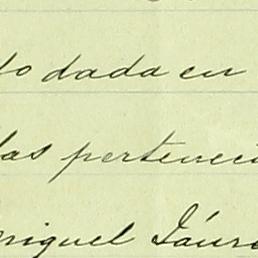 do dada en
las perteneci
miguel Láure